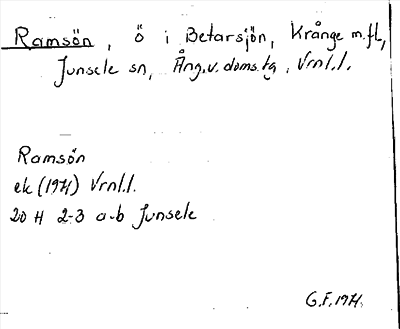 Ramsön, ö i Betarsjön, Krånge m.fl,
Junsele sn, Ång.v. doms.tg, Vrnl.l.
Ramsön
ek (1971) Vrnl.l.
20 H 2-3 a-b Junsele
G.F. 1971.